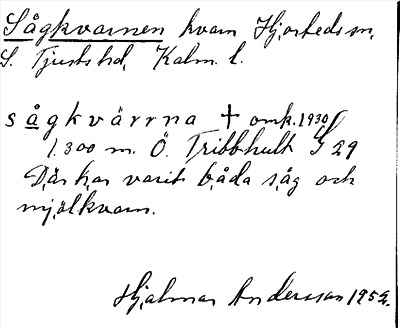 Sågkvarnen kvarn Hjorteds sn.
S. Tjusts hd, Kalm. l.
sågkvärrna † omk. 1930
1.300 m. Ö. Tribbhult G 29
Där har varit båda såg och
mjölkvarn.
Hjalmar Andersson 1952.